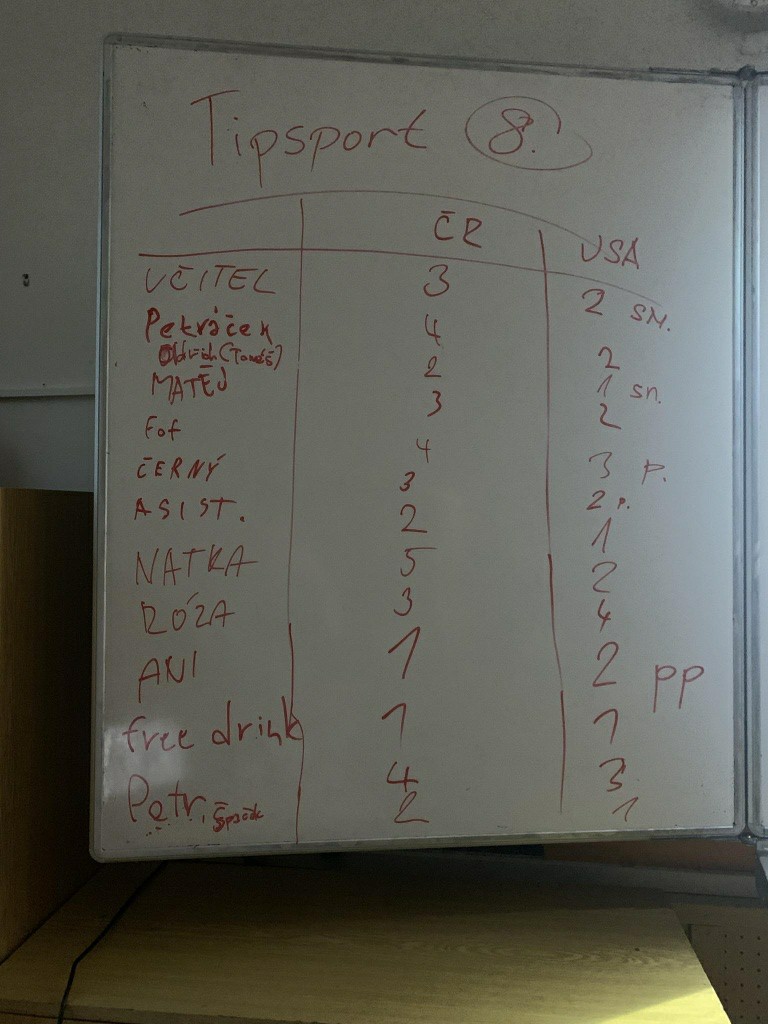 Tipsport 8.
ČR USA
UČITEL 3 2 SM.
Petráček 4 2
Oldřich (Tomáš) 2 1 sn.
MATĚJ 3 2
Fof 4 3 P.
ČERNÝ 3 2 P.
ASIST. 2 1
NATKA 5 2
RÓZA 3 4
ANI 1 2 PP
free drink 1 1
Petr. 4 3
Špaček 2 1